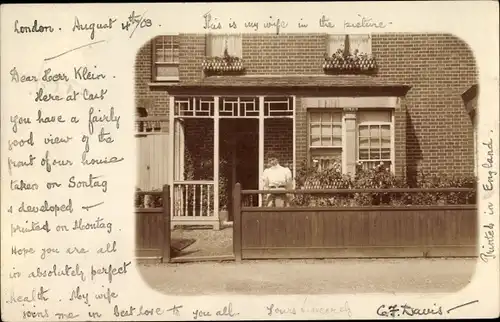 London. August 4th/03. This is my wife in the picture.
Dear Herr Klein.
Here at last
you have a fairly
good view of the
front of our house
taken on Sontag
& developed &
printed on Montag.
Hope you are all
in absolutely perfect
health. My wife
joins me in best love to you all.
Yours Sincerely
C.F. Davis
Printed in England.